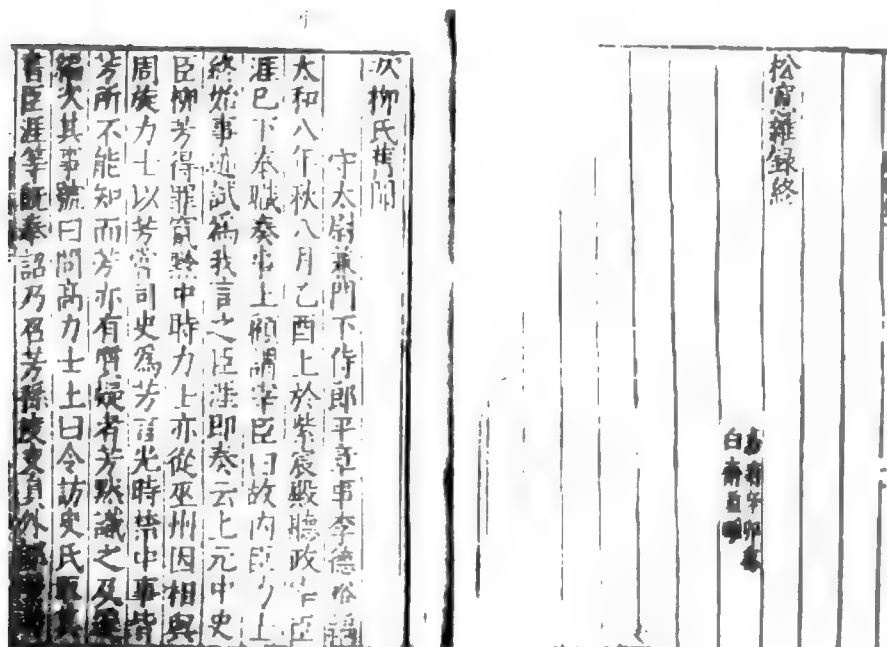 松窻雜録終
白齋
次柳氏舊聞
守太尉兼門下侍郎平章事李德裕
太和八年秋八月乙酉上於紫宸殿聽政宰臣
涯已下奉職奏事上顧謂宰臣曰故内臣力士
終始事迹試爲我言之臣涯即奏云上元中史
臣柳芳得罪竄黔中時力士亦從巫州因相與
周旋力士以芳嘗司史爲芳言先時禁中事皆
芳所不能知而芳亦有質疑者芳默識之及還
編次其事號曰問高力士上曰令訪史氏取其
書臣涯等既奉詔乃召芳孫度支員外郎